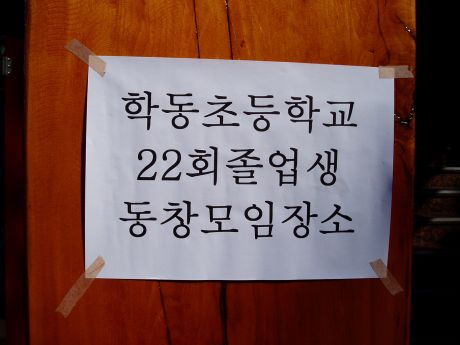 학동초등학교
22회졸업생
동창모임장소